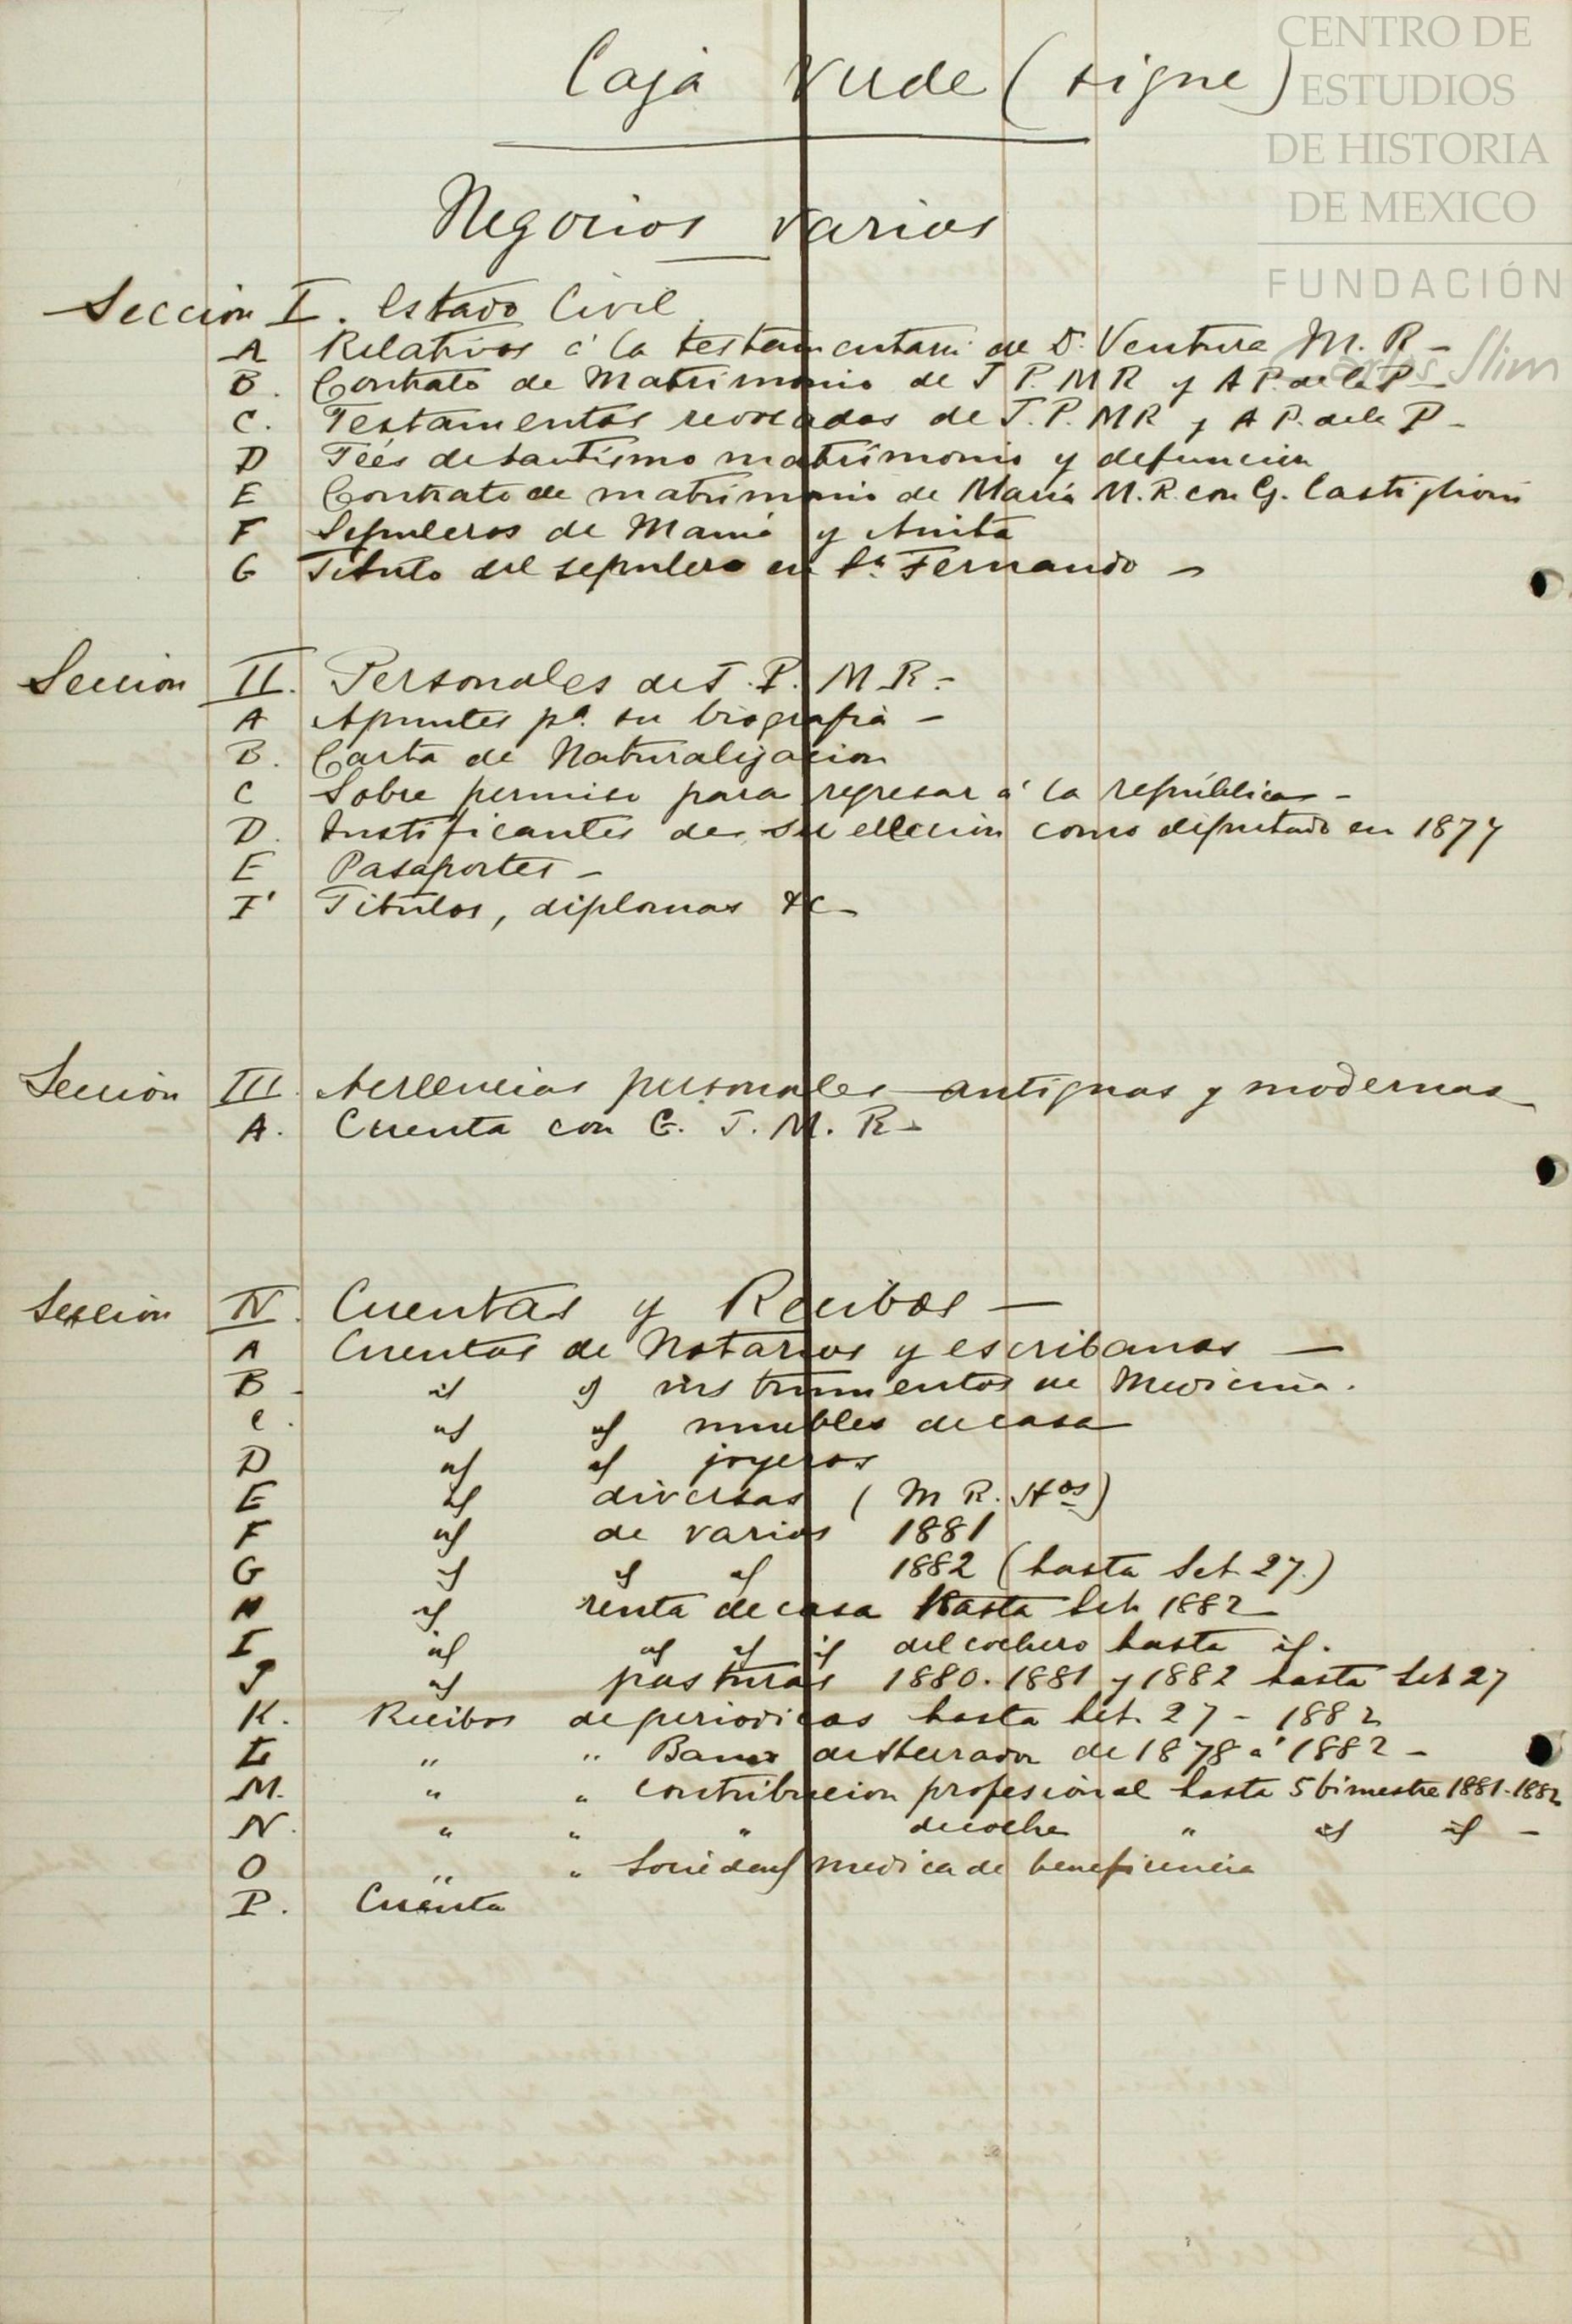 Caja Verde (sigue)
Negocios varios
Sección I. Estado Civil
A Relativos á la testamentaria de D. Ventura M. R -
B. Contrato de Matrimonio de J P. M R y A P. de la P -
C. Testamentos revocados de J. P. M R y A P. de la P -
D Fées de bautismo matrimonio y defuncion
E Contrato de matrimonio de María M. R. con G. Castiglioni
F Sepulcros de Mamá y Anita
G Titulo del sepulcro en Sn. Fernando -
Seccion II. Personales de J. P. M R. -
A Apuntes pa. su biografia -
B. Carta de Naturalizacion
C Sobre permiso para regresar á la república -
D. Justificantes de su eleccion como diputado en 1877
E Pasaportes -
F Titulos, diplomas &c -
Sección III. Acreencias personales antiguas y modernas
A. Cuenta con G. J. M. R -
Sección IV. Cuentas y Recibos -
A Cuentas de Notarios y escribanos -
B - id id instrumentos de Medicina.
C. id id muebles de casa
D id id joyeros
E id diversas (M R. Hos)
F id de varios 1881
G id id id 1882 (hasta Set. 27.)
H id renta de casa hasta Set. 1882
I id id id id del cochero hasta id.
J id pasturas 1880. 1881 y 1882 hasta Set 27
K. Recibos de periodicos hasta Set. 27 - 1882
L " " Banco de 1878 á 1882 -
M. " " contribucion profesional hasta 5 bimestre 1881-1882
N. " " " de coche " id id -
O " " Sociedad medica de beneficencia
P. Cuenta
CENTRO DE
ESTUDIOS
DE HISTORIA
DE MEXICO
FUNDACIÓN
Carlos Slim